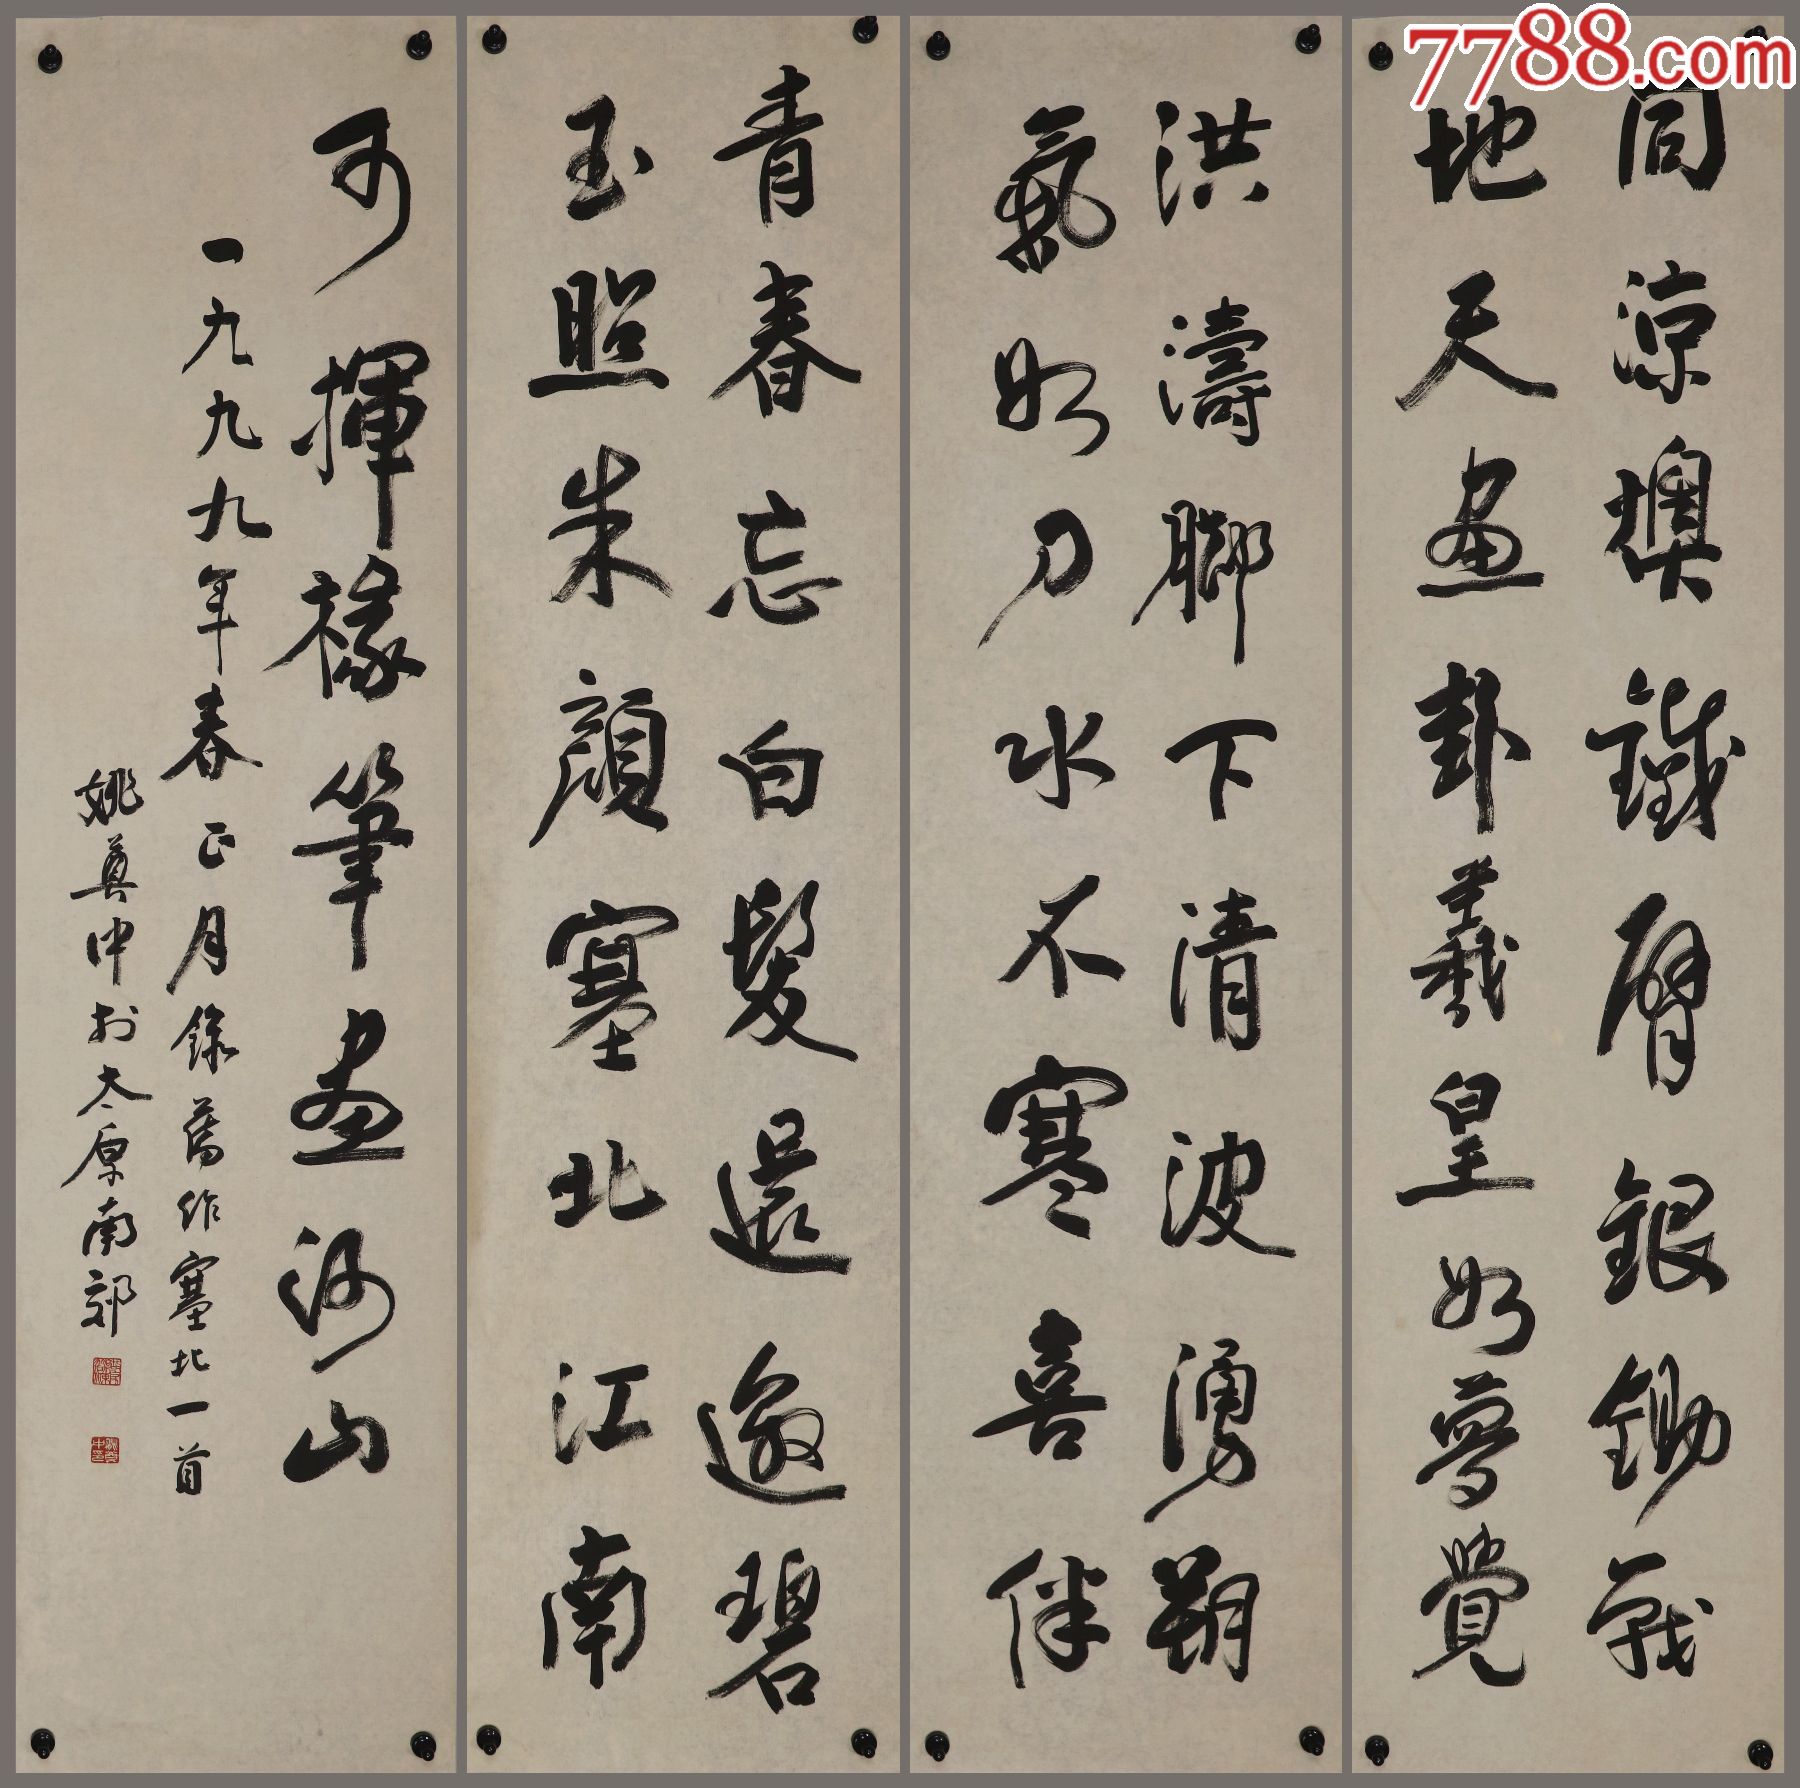 涼墺鐵臂銀鋤戰
地天畫卦羲皇如夢覺
洪濤腳下清波湧朔
氣如刀水不寒喜伴
青春忘白髮還邀碧
玉照朱顏塞北江南
可揮椽筆畫河山
一九九九年春正月錄舊作塞北一首
姚奠中於太原南郊
7788.com